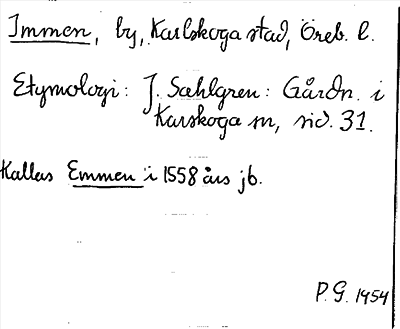 Immen, by, Karlskoga stad, Öreb. l.
Etymologi: J. Sahlgren: Gårdn. i
Karskoga sn, sid. 31.
Kallas Emmen i 1558 års jb.
P. G. 1954